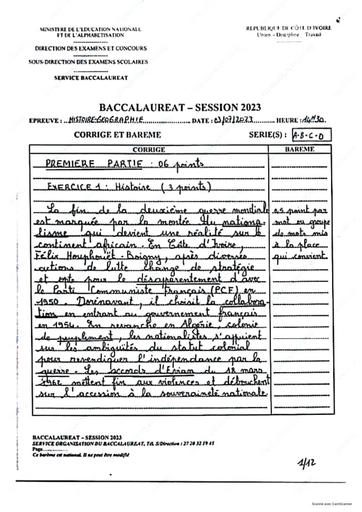 MINISTERE DE L'EDUCATION NATIONALE
ET DE L'ALPHABETISATION
REPUBLIQUE DE CÔTE D'IVOIRE
Union – Discipline – Travail
DIRECTION DES EXAMENS ET CONCOURS
SOUS-DIRECTION DES EXAMENS SCOLAIRES
SERVICE BACCALAUREAT
BACCALAUREAT – SESSION 2023
EPREUVE : HISTOIRE-GEOGRAPHIE DATE : 03/07/2023 HEURE : 14H30
CORRIGE ET BAREME SERIE(S) : A-B-C-D
CORRIGE BAREME
PREMIERE PARTIE : 06 points
EXERCICE 1 : Histoire (3 points)
La fin de la deuxième guerre mondiale
est marquée par la montée du natio
lisme qui devient une réalité sur le
continent africain. En Côte d'Ivoire,
Félix Houphouët-Boigny, après diverses
actions de lutte change de stratégie
et opte pour le désapparentement d'avec
le Parti Communiste Français (PCF) en
1950. Dorénavant, il choisit la collabora-
tion en entrant au gouvernement français
en 1954. En revanche en Algérie, colonie
de peuplement, les nationalistes s'appuient
sur les ambiguïtés du statut colonial
pour revendiquer l'indépendance par la
guerre. Les accords d'Evian du 18 mars
1962 mettent fin aux violences et débouchent
sur l'accession à la souveraineté nationale
0,5 point par
mot ou groupe
de mots mis
à la place
qui convient.
BACCALAUREAT – SESSION 2023
SERVICE ORGANISATION DU BACCALAUREAT, Tél. S/Direction : 27 20 32 19 45
Page
Ce barème est national. Il ne peut être modifié
1/12
Scanné avec CamScanner